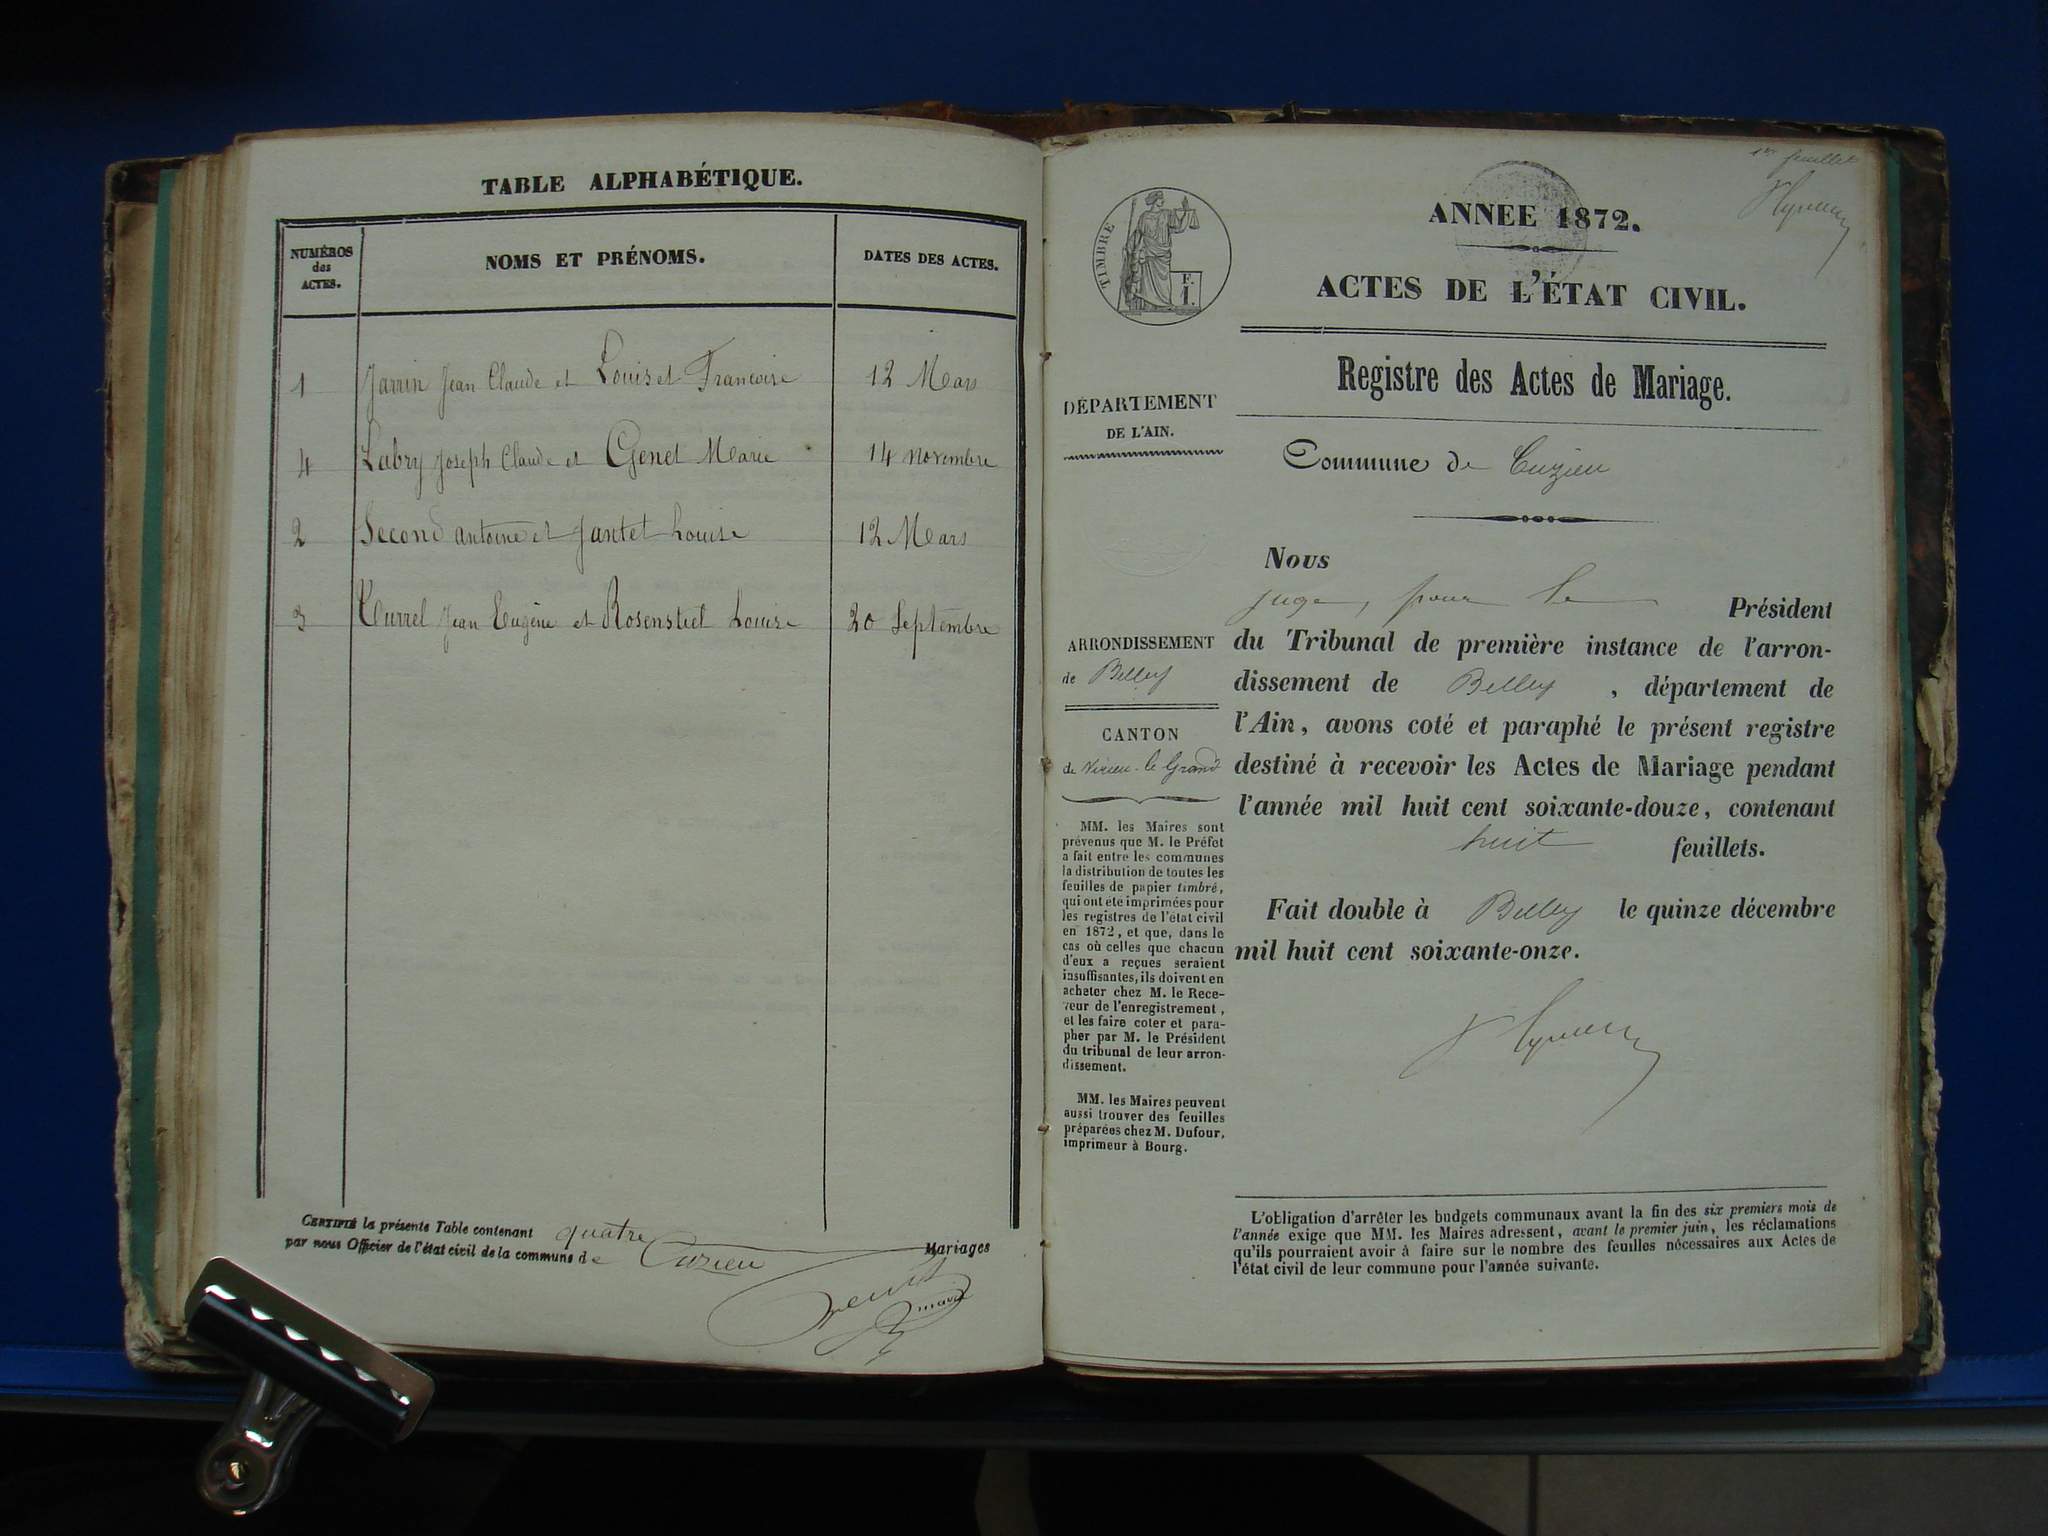 TABLE ALPHABÉTIQUE.
NUMÉROS
des
ACTES.
NOMS ET PRÉNOMS.
DATES DES ACTES.
1 Jarrin Jean Claude et Louiset Francoise 12 Mars
4 Labry Joseph Claude et Genet Marie 14 novembre
2 Second antoine et Jantet Louise 12 Mars
3 Jean Eugène et Rosenstiel Louise 20 Septembre
CERTIFIÉ la présente Table contenant quatre Mariages
par nous Officier de l'état civil de la commune de Cuzieu
1er feuillet
TIMBRE
F.
1.
ANNEE 1872.
ACTES DE L'ÉTAT CIVIL.
Registre des Actes de Mariage.
DÉPARTEMENT
DE L'AIN.
Commune de Cuzieu
ARRONDISSEMENT
de Belley
CANTON
de Virieu-le-Grand
MM. les Maires sont
prévenus que M. le Préfet
a fait entre les communes
la distribution de toutes les
feuilles de papier timbré,
qui ont été imprimées pour
les registres de l'état civil
en 1872, et que, dans le
cas où celles que chacun
d'eux a reçues seraient
insuffisantes, ils doivent en
acheter chez M. le Rece-
veur de l'enregistrement,
et les faire coter et para-
pher par M. le Président
du tribunal de leur arron-
dissement.
MM. les Maires peuvent
aussi trouver des feuilles
préparées chez M. Dufour,
imprimeur à Bourg.
Nous
juge, pour le Président
du Tribunal de première instance de l'arron-
dissement de Belley, département de
l'Ain, avons coté et paraphé le présent registre
destiné à recevoir les Actes de Mariage pendant
l'année mil huit cent soixante-douze, contenant
huit feuillets.
Fait double à Belley le quinze décembre
mil huit cent soixante-onze.
L'obligation d'arrêter les budgets communaux avant la fin des six premiers mois de
l'année exige que MM. les Maires adressent, avant le premier juin, les réclamations
qu'ils pourraient avoir à faire sur le nombre des feuilles nécessaires aux Actes de
l'état civil de leur commune pour l'année suivante.